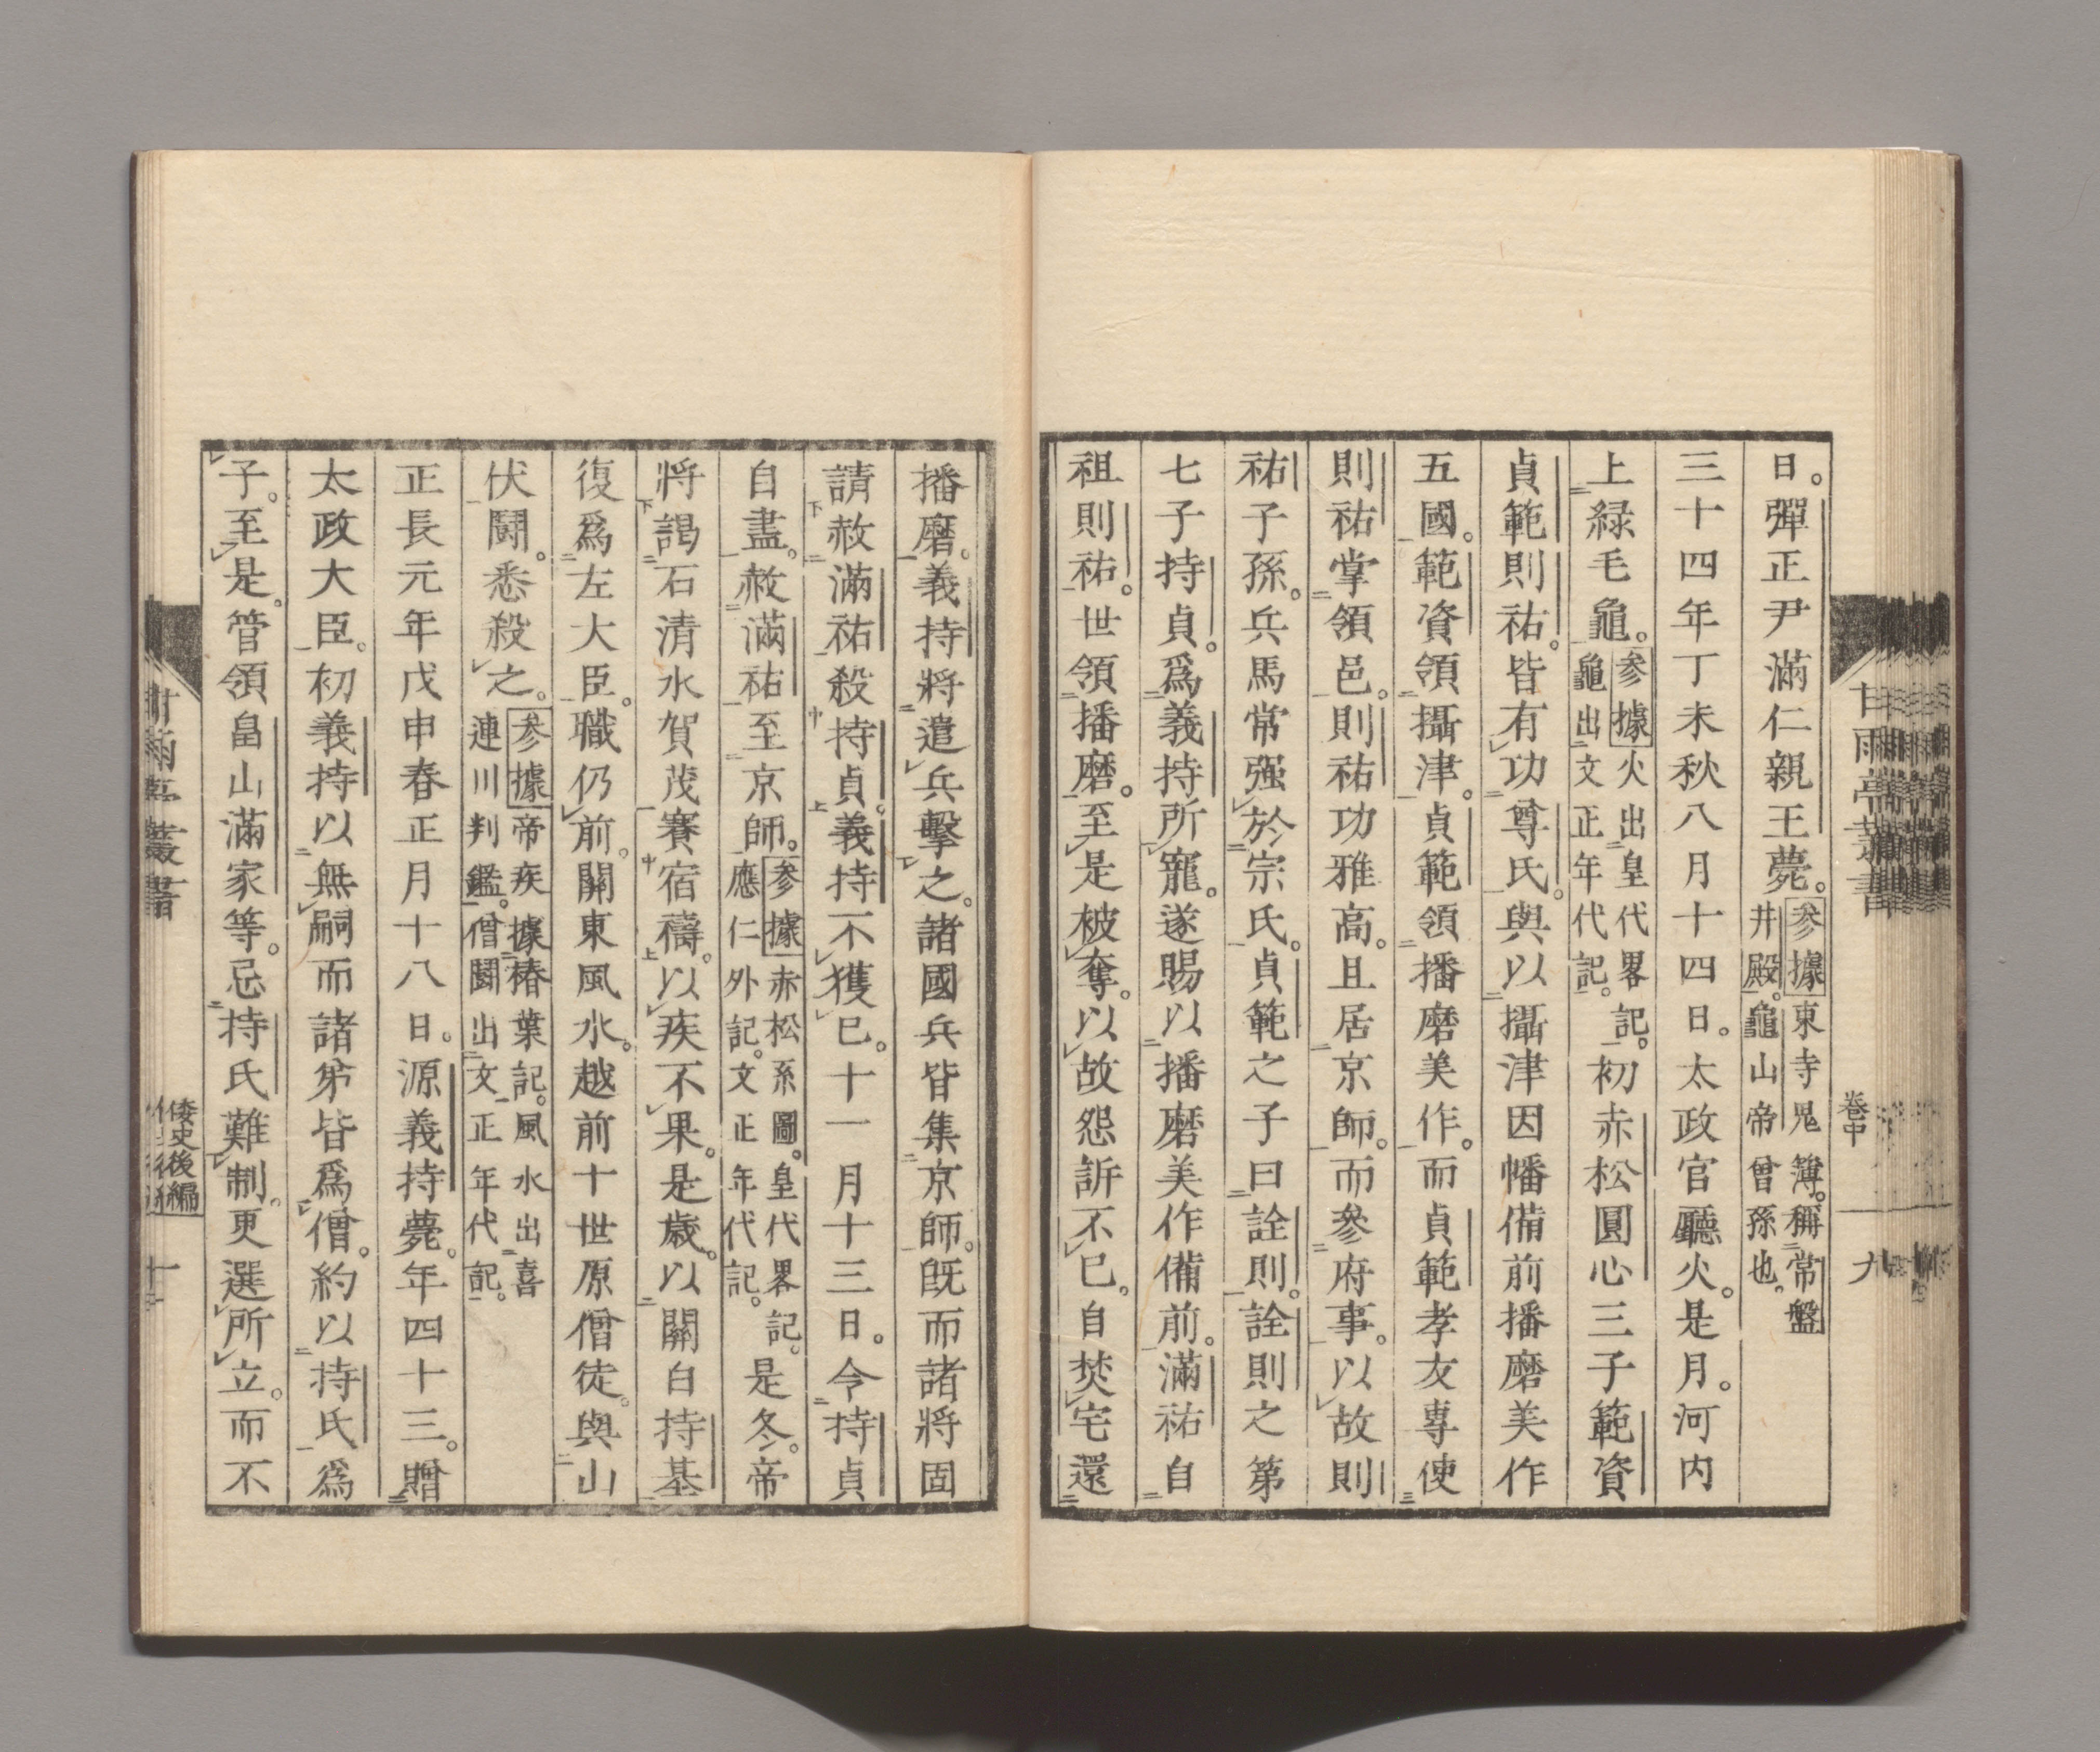 日。彈正尹滿仁親王薨。參據東寺鬼簿。稱常盤
井殿。龜山帝曾孫也。
三十四年丁未秋八月十四日。太政官廳火。是月。河內
上緑毛龜。參據火出皇代畧記。
龜出文正年代記。初赤松圓心三子範資
貞範則祐。皆有功尊氏。與以攝津因幡備前播磨美作
五國。範資領攝津。貞範領播磨美作。而貞範孝友專使
則祐掌領邑。則祐功雅高。且居京師。而參府事。以故則
祐子孫。兵馬常强於宗氏。貞範之子曰詮則。詮則之第
七子持貞。爲義持所寵。遂賜以播磨美作備前。滿祐自
祖則祐。世領播磨。至是被奪。以故怨訴不已。自焚宅還
甘雨亭叢書
卷中
九
播磨。義持將遣兵擊之。諸國兵皆集京師。既而諸將固
請赦滿祐殺持貞。義持不獲已。十一月十三日。令持貞
自盡。赦滿祐至京師。參據赤松系圖。皇代畧記。
應仁外記。文正年代記。是冬。帝
將謁石清水賀茂賽宿禱。以疾不果。是歲。以關白持基
復爲左大臣。職仍前。關東風水。越前十世原僧徒。與山
伏鬪。悉殺之。參據帝疾據椿葉記。風水出喜
連川判鑑。僧鬪出文正年代記。
正長元年戊申春正月十八日。源義持薨。年四十三。贈
太政大臣。初義持以無嗣而諸弟皆爲僧。約以持氏爲
子。至是。管領畠山滿家等。忌持氏難制。更選所立。而不
甘雨亭叢書
倭史後編
十